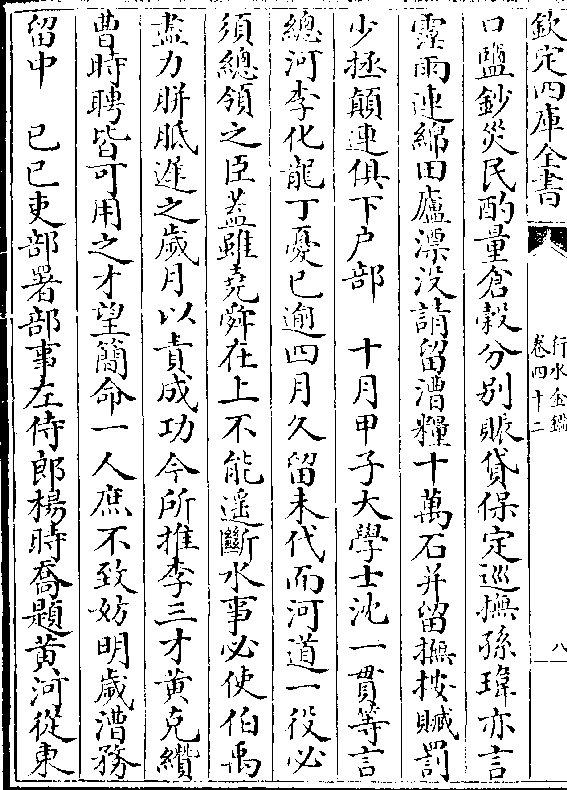 欽定四庫全書
行水金鑑
卷四十二
八
口鹽鈔災民酌量倉榖分别賑貸保定巡撫孫瑋亦言
霪雨連綿田廬漂没請留漕糧十萬石并留撫按贓罰
少拯顛連俱下户部　十月甲子大學士沈一貫等言
總河李化龍丁憂已逾四月久留未代而河道一役必
須總領之臣葢雖堯舜在上不能遥斷水事必使伯禹
盡力胼胝遲之歲月以責成功今所推李三才黄克纘
曹時聘皆可用之才望簡命一人庶不致妨明歲漕務
留中　己巳吏部署部事左侍郎楊時喬題黄河從東